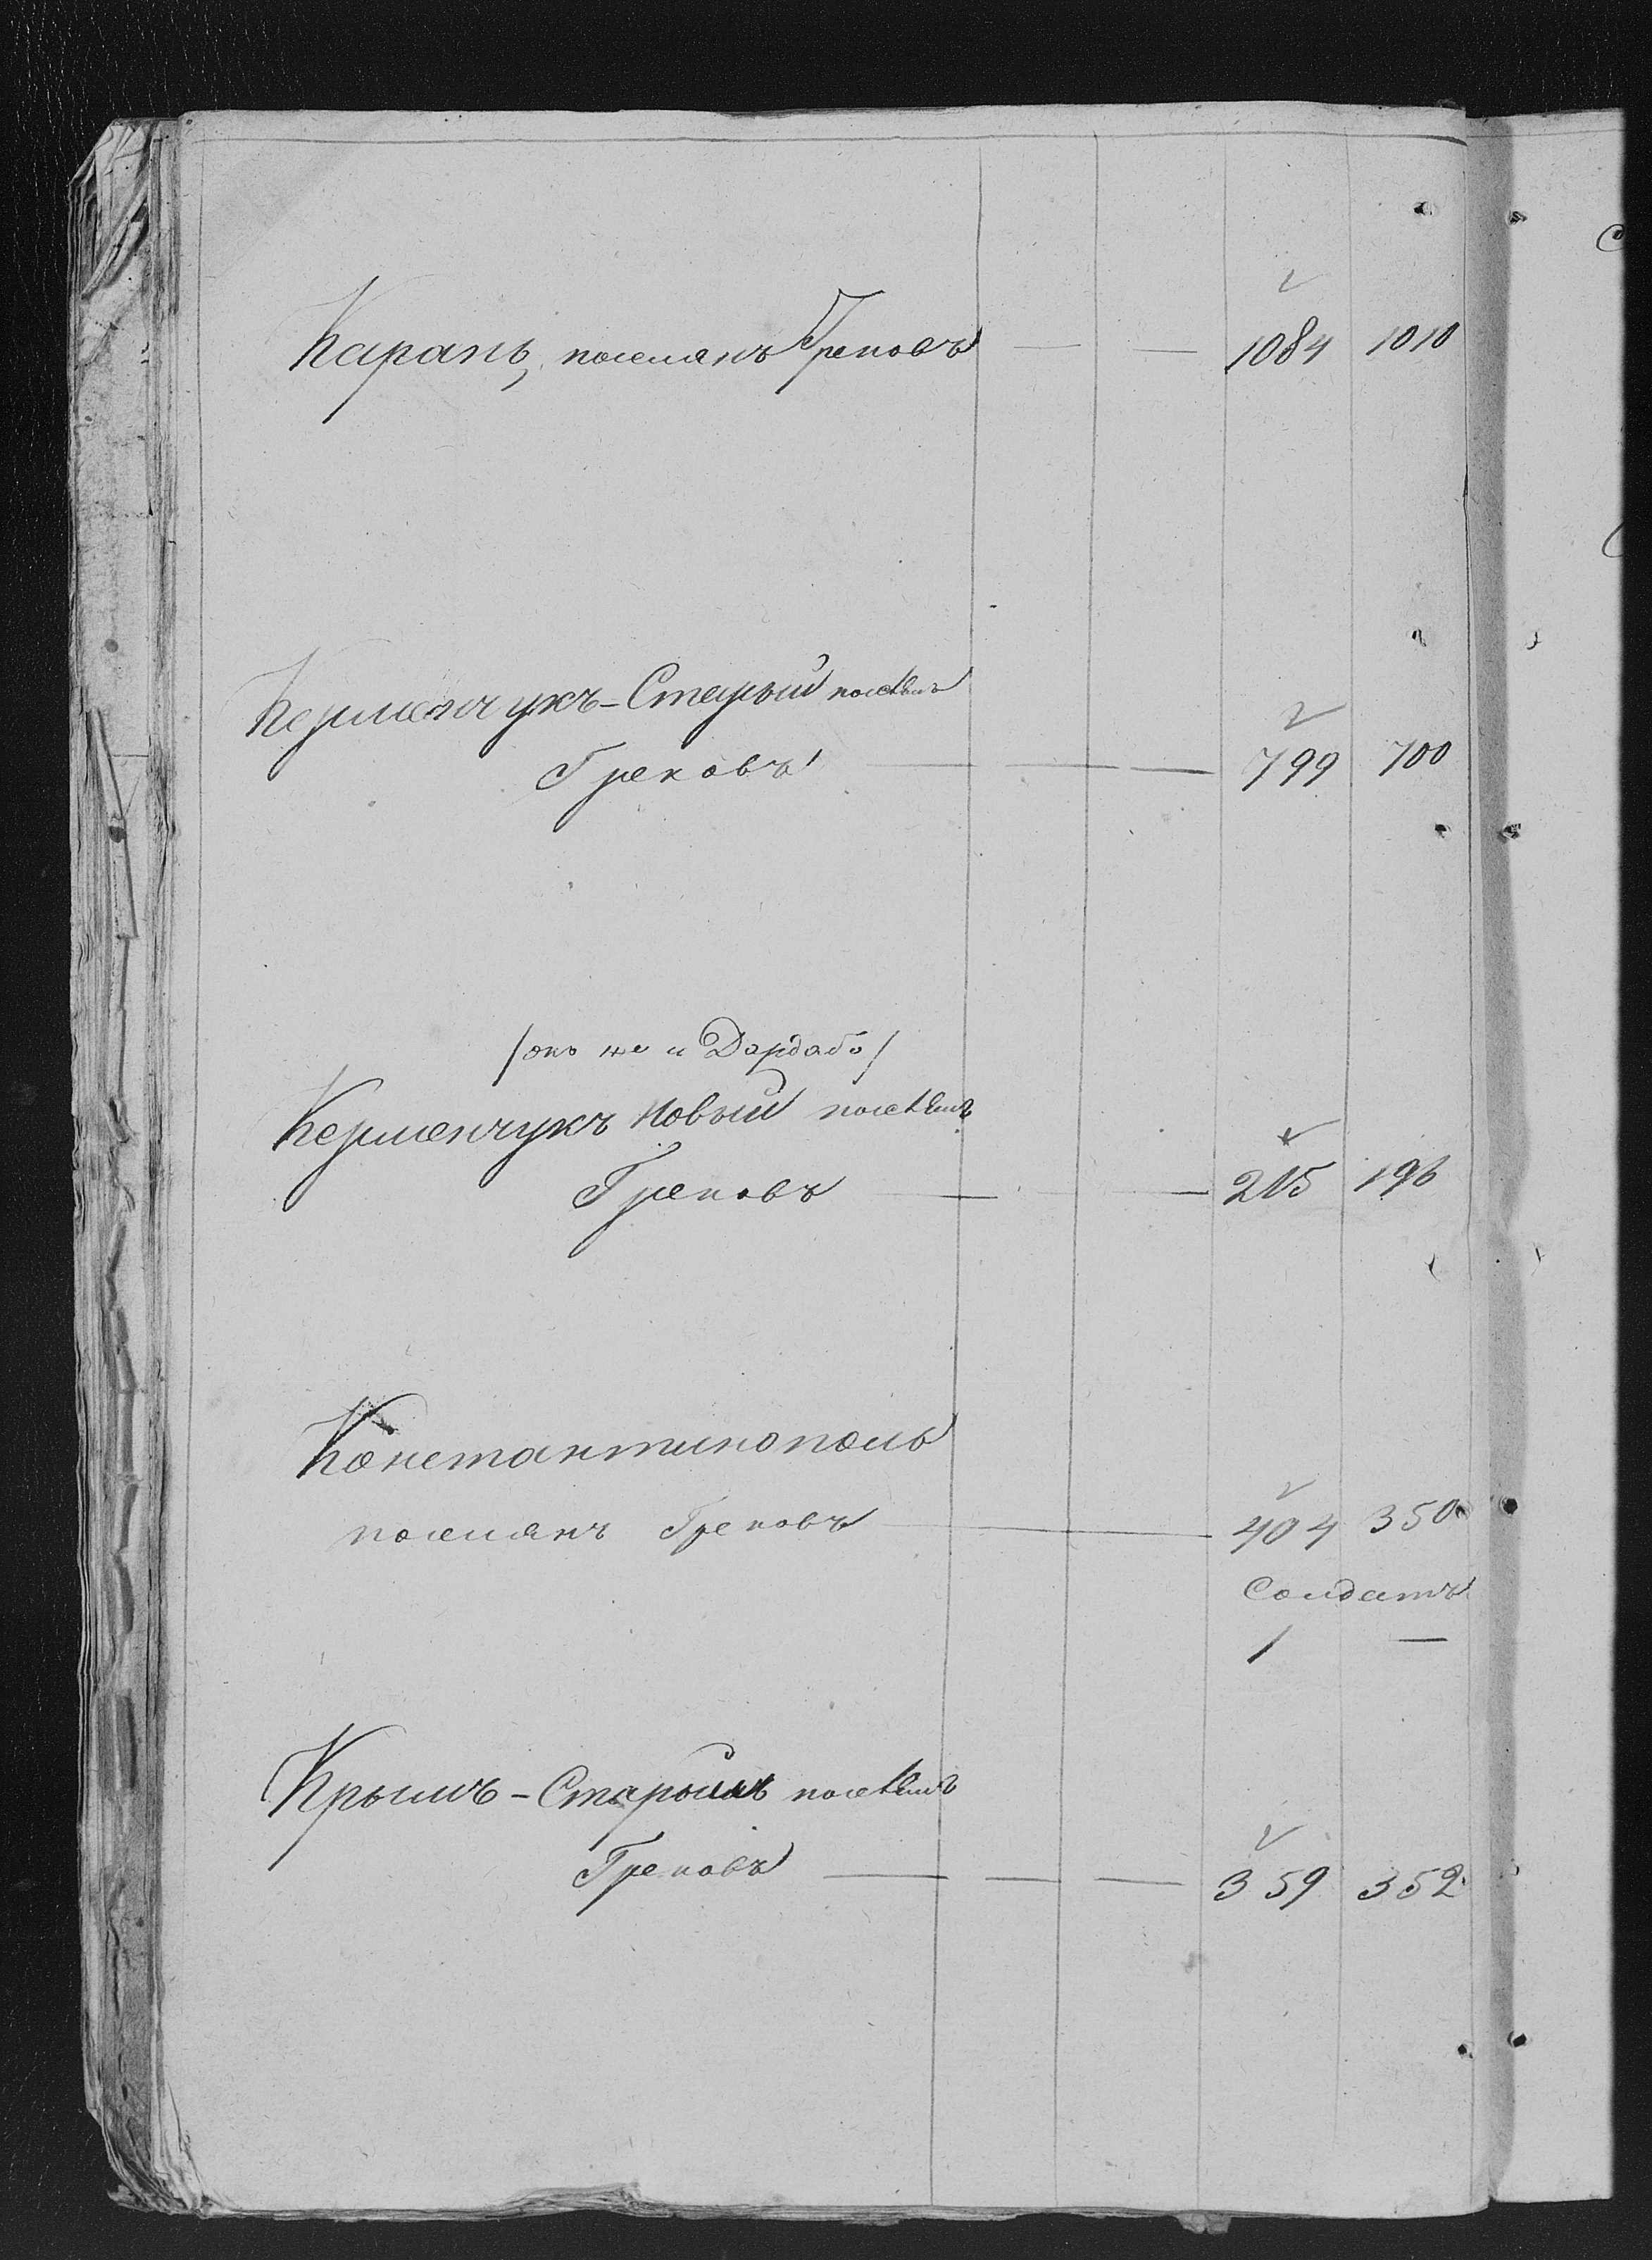 Карань, поселянъ Грековъ — — 1084 1010
Керменчукъ-Старый посел.
Грековъ — — — 799 700
/онъ же и Дардабо/
Керменчукъ Новый
Грековъ — — 215 196
Константинополь
поселянъ Грековъ — 404 350
Солдатъ
1 —
Крымъ-Старый
Грековъ — — — 359 352